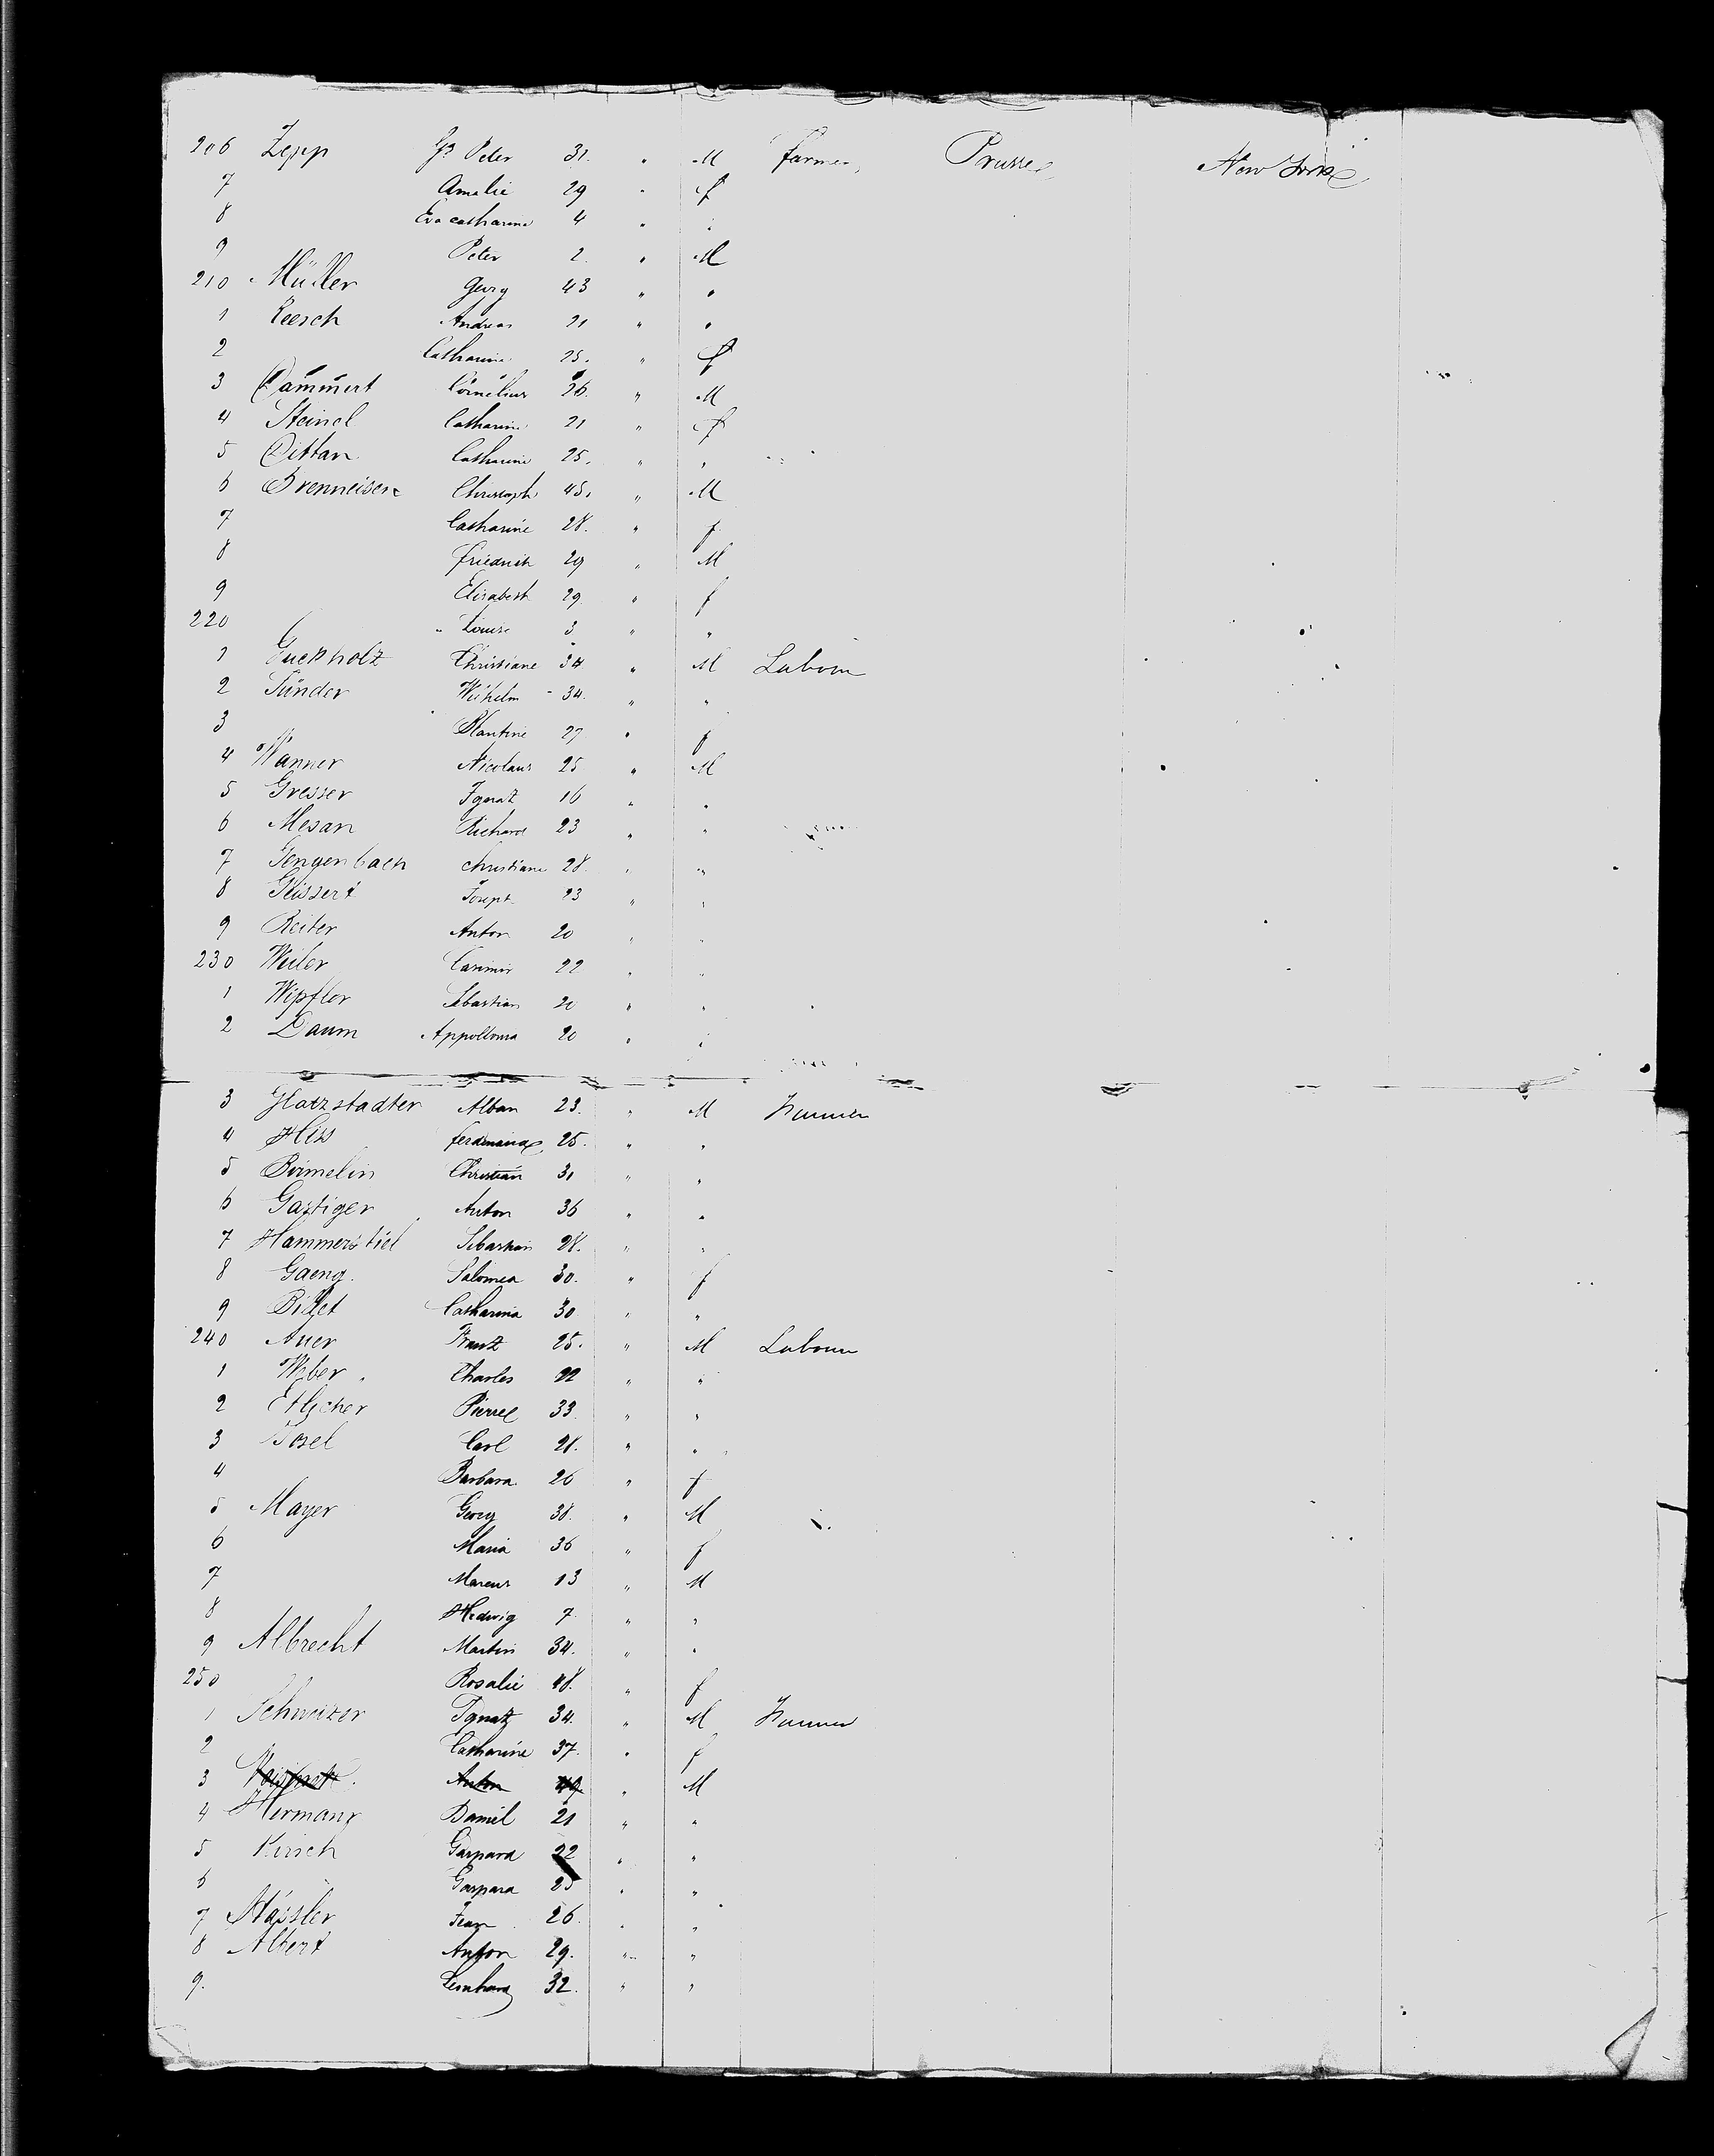 206 Zepp Gg Peter 31. " M Farmer Prussee New York
7 Amalie 29 " f
8 Eva Catharine 4 " "
9 Peter 2. " M
210 Müller Georg 43 " "
1 Reesch Andreas 21 " "
2 Catharine 25. " f
3 Dammert Cornelius 26. " M
4 Steinel Catharine 21 " f
5 Dittan Catharine 25. " "
6 Brenneisen Christoph 45. " M
7 Catharine 28. " f
8 Friedrich 29 " M
9 Elisabeth 29. " f
220 " Louise 3 " "
1 Guckholz Christiane 34 " M Labour
2 Sünder Wilhelm - 34. " "
3 27 " f
4 Wanner Nicolaus 25 " M
5 Gresser Ignatz 16 " "
6 Mesan Richard 23 " "
7 Gengenbach Christiane 28. " "
8 Geissert Joseph 23 " "
9 Reiter Anton 20 " "
230 Weiler Casimir 22 " "
1 Wipfler Sebastian 20 " "
2 Daum Appollonia 20 " "
3 Glatzstadter Alban 23. " M Farmer
4 Hiss Ferdinand 25. " "
5 Birmelin Christian 31 " "
6 Gastiger Anton 36 " "
7 Hammerstiel Sebastian 28. " "
8 Gaeng. Salomea 30. " f
9 Billet Catharina 30 " "
240 Auer Frantz 25. " M Labour
1 Weber Charles 22 " "
2 Etlicher Pierre 33. " "
3 Josel Carl 28. " "
4 Barbara 26 " f
5 Mayer Georg 38. " M
6 Maria 36 " f
7 Marcus 13 " M
8 Hedwig 7. " "
9 Albrecht Martin 34. " "
250 Rosalie 48. " f
1 Schweizer Ignatz 34. " M Farmer
2 Catharine 37. " f
3 Anton 49 " M
4 Hermann Daniel 21 " "
5 Kirsch Gaspard 22 " "
6 Gaspard 25 " "
7 Hässler Jean 26. " "
8 Albert Anton 29. " "
9. Leonhard 32. " "